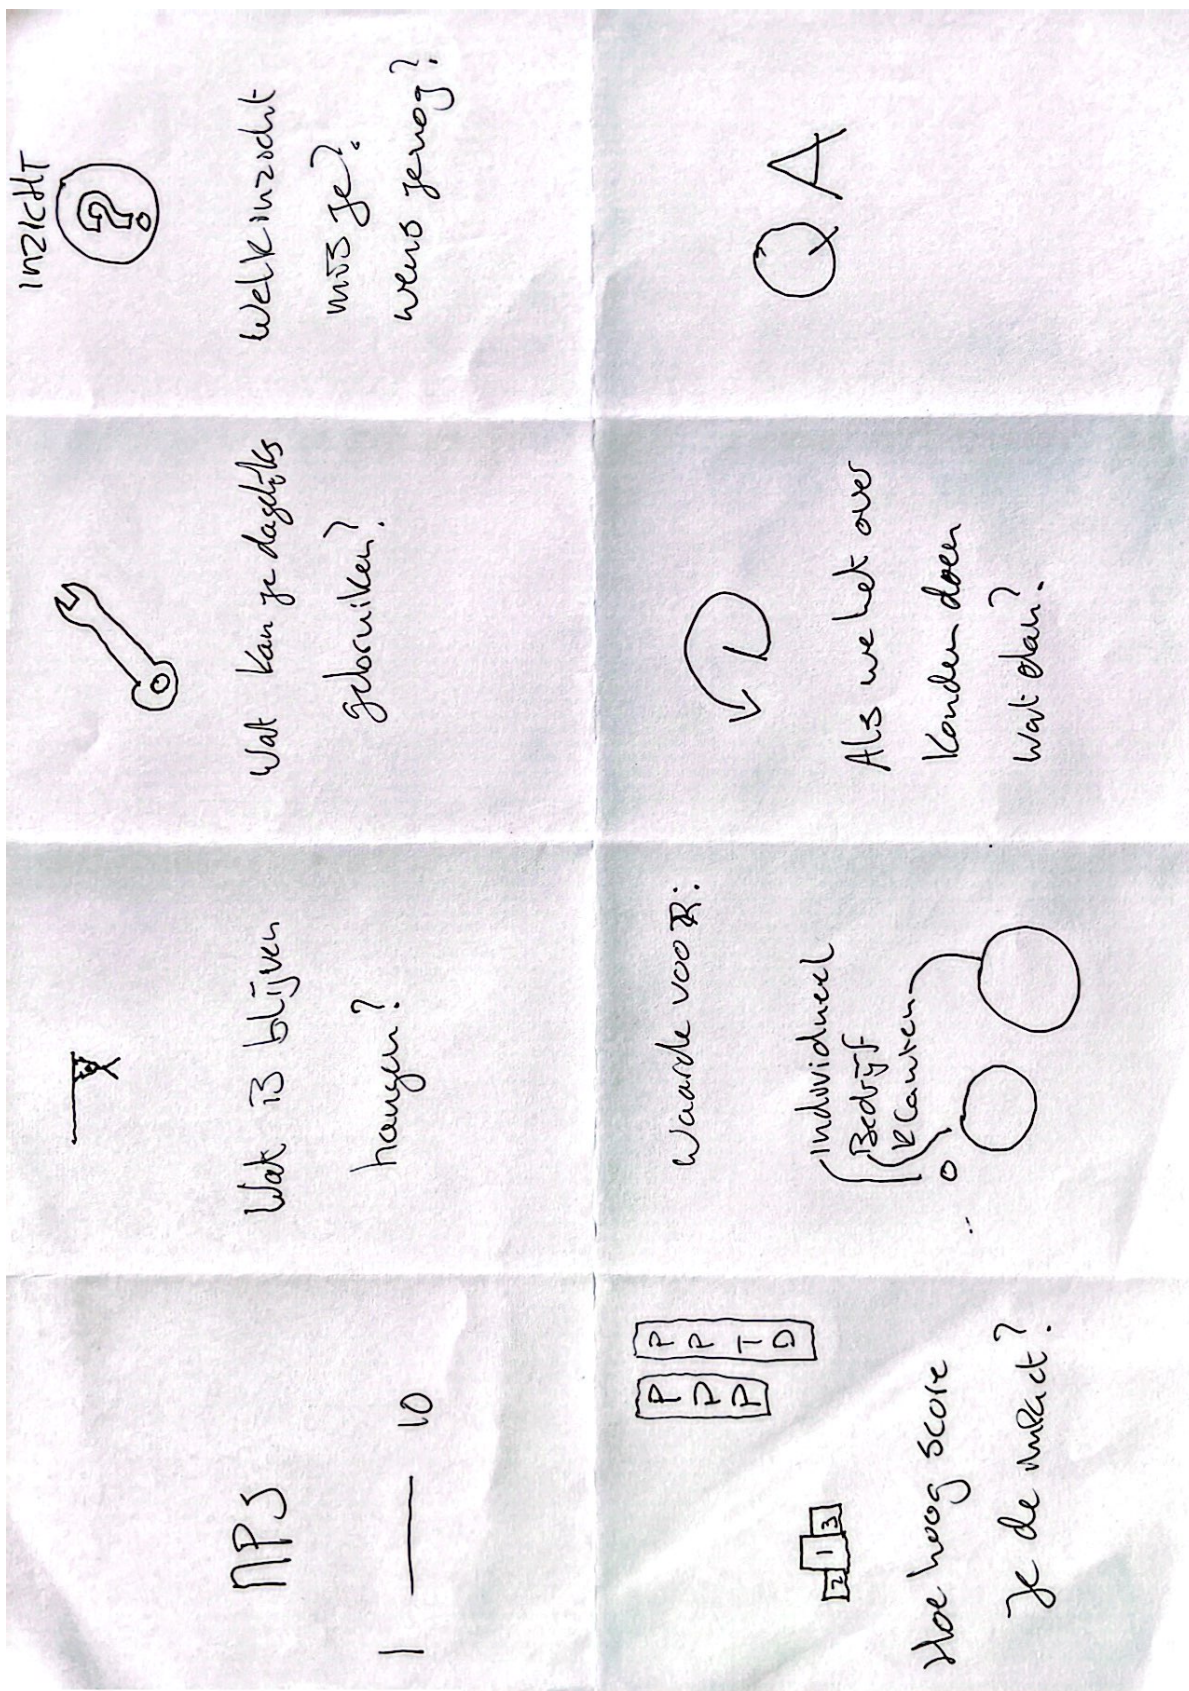 NPS
1 — 10
Wat is blijven
hangen?
Wat kan je dagelijks
gebruiken?
INZICHT
?
Welk inzicht
mis je?
wens je nog?
P
P
P
P
P
T
D
2 1 3
Hoe hoog score
je de impact?
Waarde voor:
Individueel
Bedrijf
Klanten
Als we het over
konden doen
wat dan?
Q A